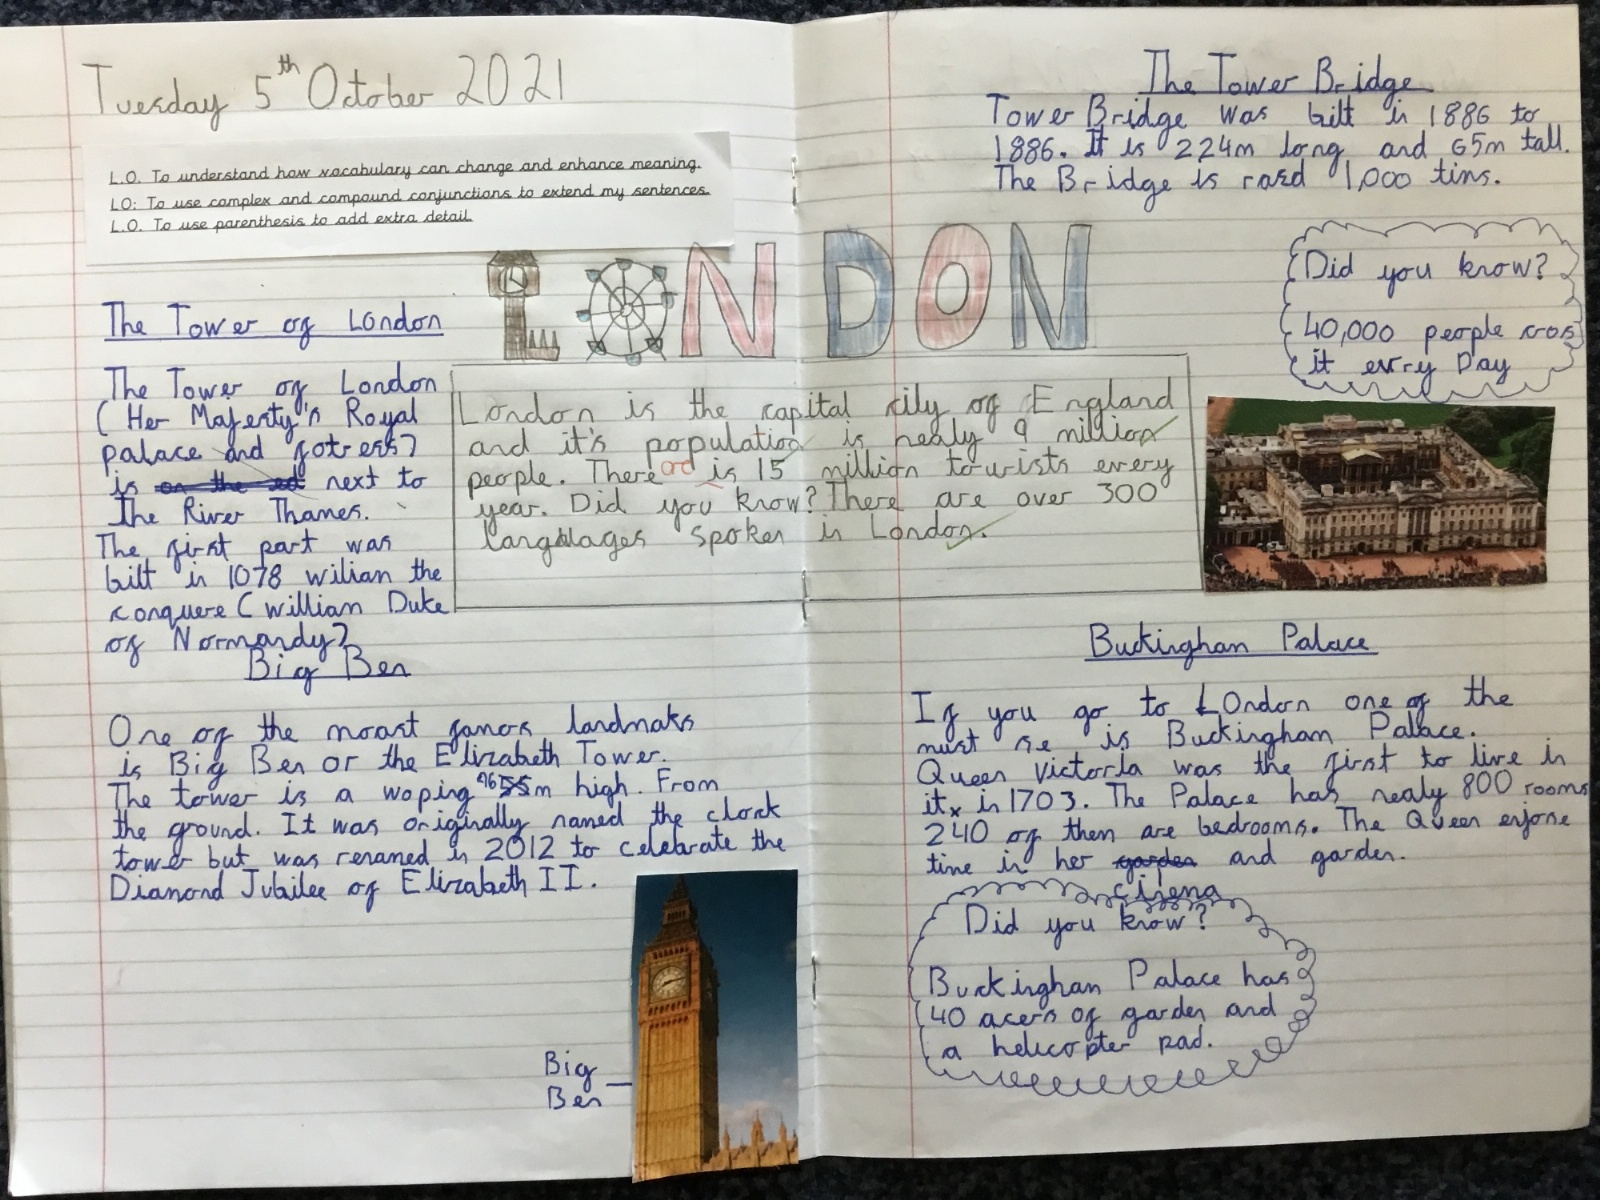 Tuesday 5th October 2021
L.O. To understand how vocabulary can change and enhance meaning.
LO: To use complex and compound conjunctions to extend my sentences.
L.O. To use parenthesis to add extra detail.
LONDON
London is the capital city of England
and it's population is nealy 9 million
people. There is 15 million tourists every
year. Did you know? There are over 300
languages spoken in London.
The Tower of London
The Tower of London
( Her Majerty's Royal
palace and fotress)
is next to
The River Thames.
The first part was
bilt in 1078 wilian the
conquere ( willian Duke
of Normandy)
Big Ben
One of the moast famos landmaks
is Big Ben or the Elizabeth Tower.
The tower is a woping 96m high. From
the ground. It was originally named the clock
tower but was renamed in 2012 to celebrate the
Diamond Jubilee of Elizabeth II.
Big
Ben
The Tower Bridge
Tower Bridge was bilt in 1886 to
1886. It is 224m long and 65m tall.
The Bridge is rased 1,000 tims.
Did you know?
40,000 people cros
it evrry Day
Buckingham Palace
If you go to LOndon one of the
must se is Buckingham Palace.
Queen Victoria was the first to live in
it in 1703. The Palace has nealy 800 rooms
240 of them are bedrooms. The Queen enjone
time in her and garden.
cinema
Did you know?
Buckingham Palace has
40 acers of garden and
a helicopter pad.